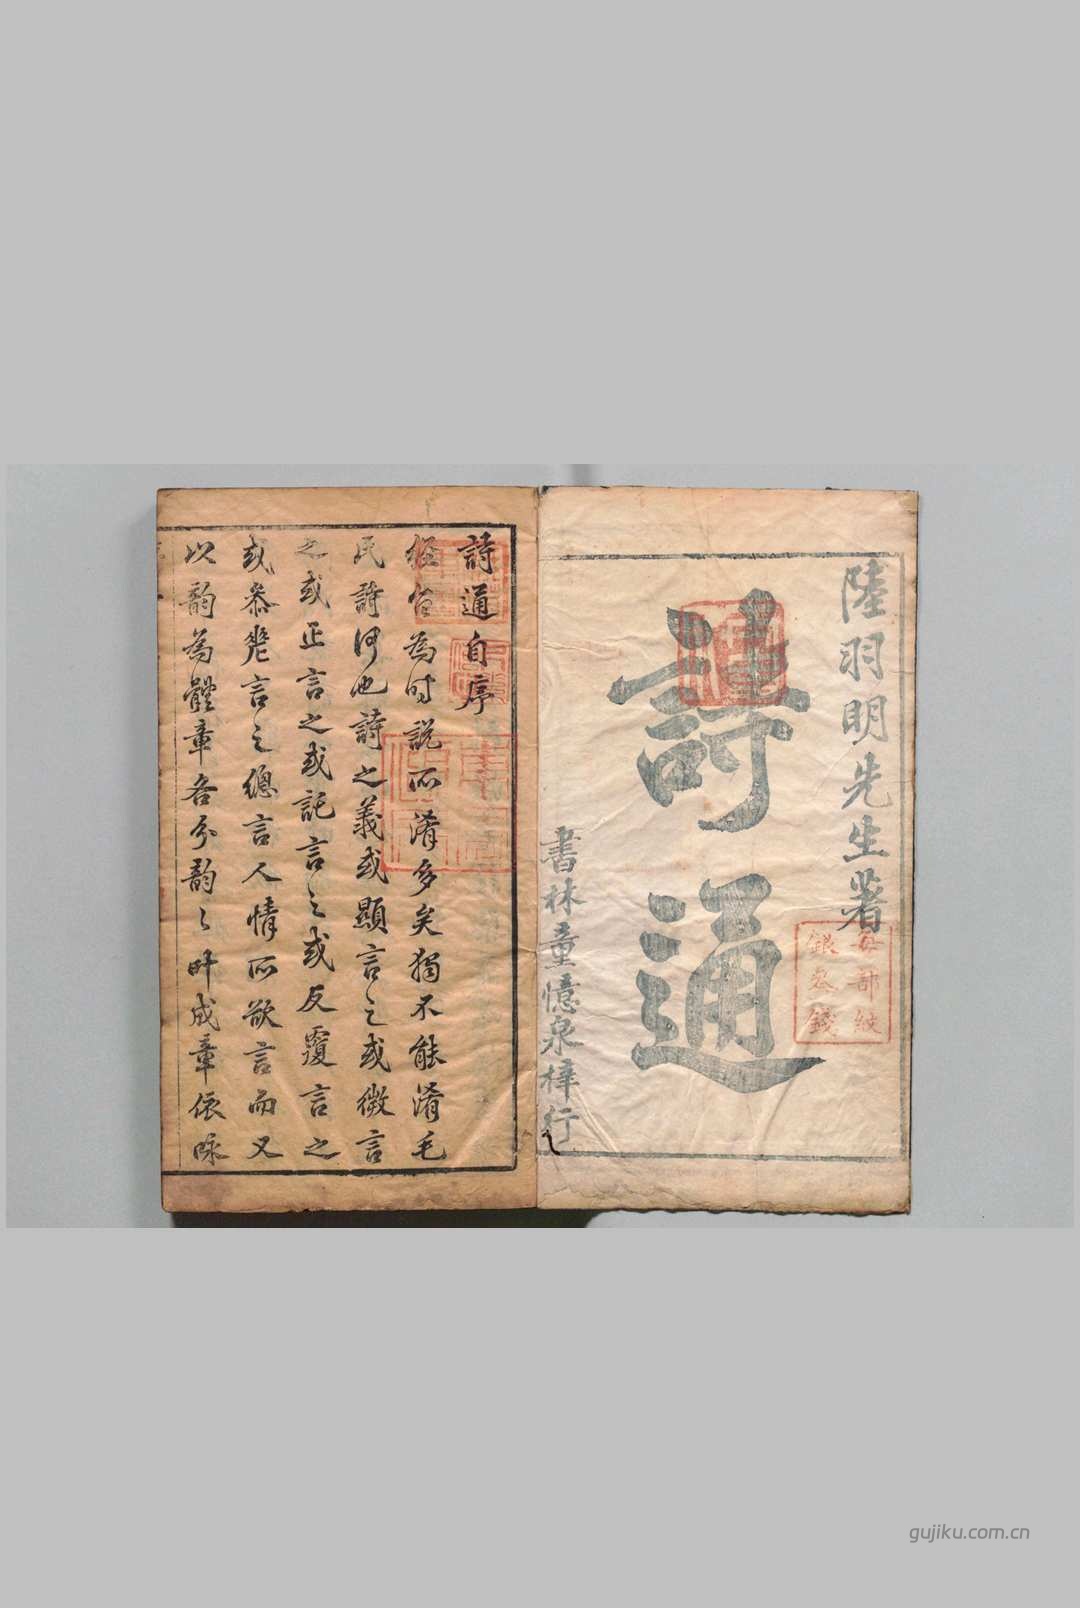 陸羽明先生著
詩通
書林童憶泉梓行
每部紋
銀叁錢
詩通自序
經旨為時說所淆多矣獨不能淆毛
民詩何也詩之義或顯言之或微言
之或正言之或託言之或反覆言之
或參差言之總言人情所欲言而又
以韵為體章各分韵〻叶成章依咏
gujiku.com.cn